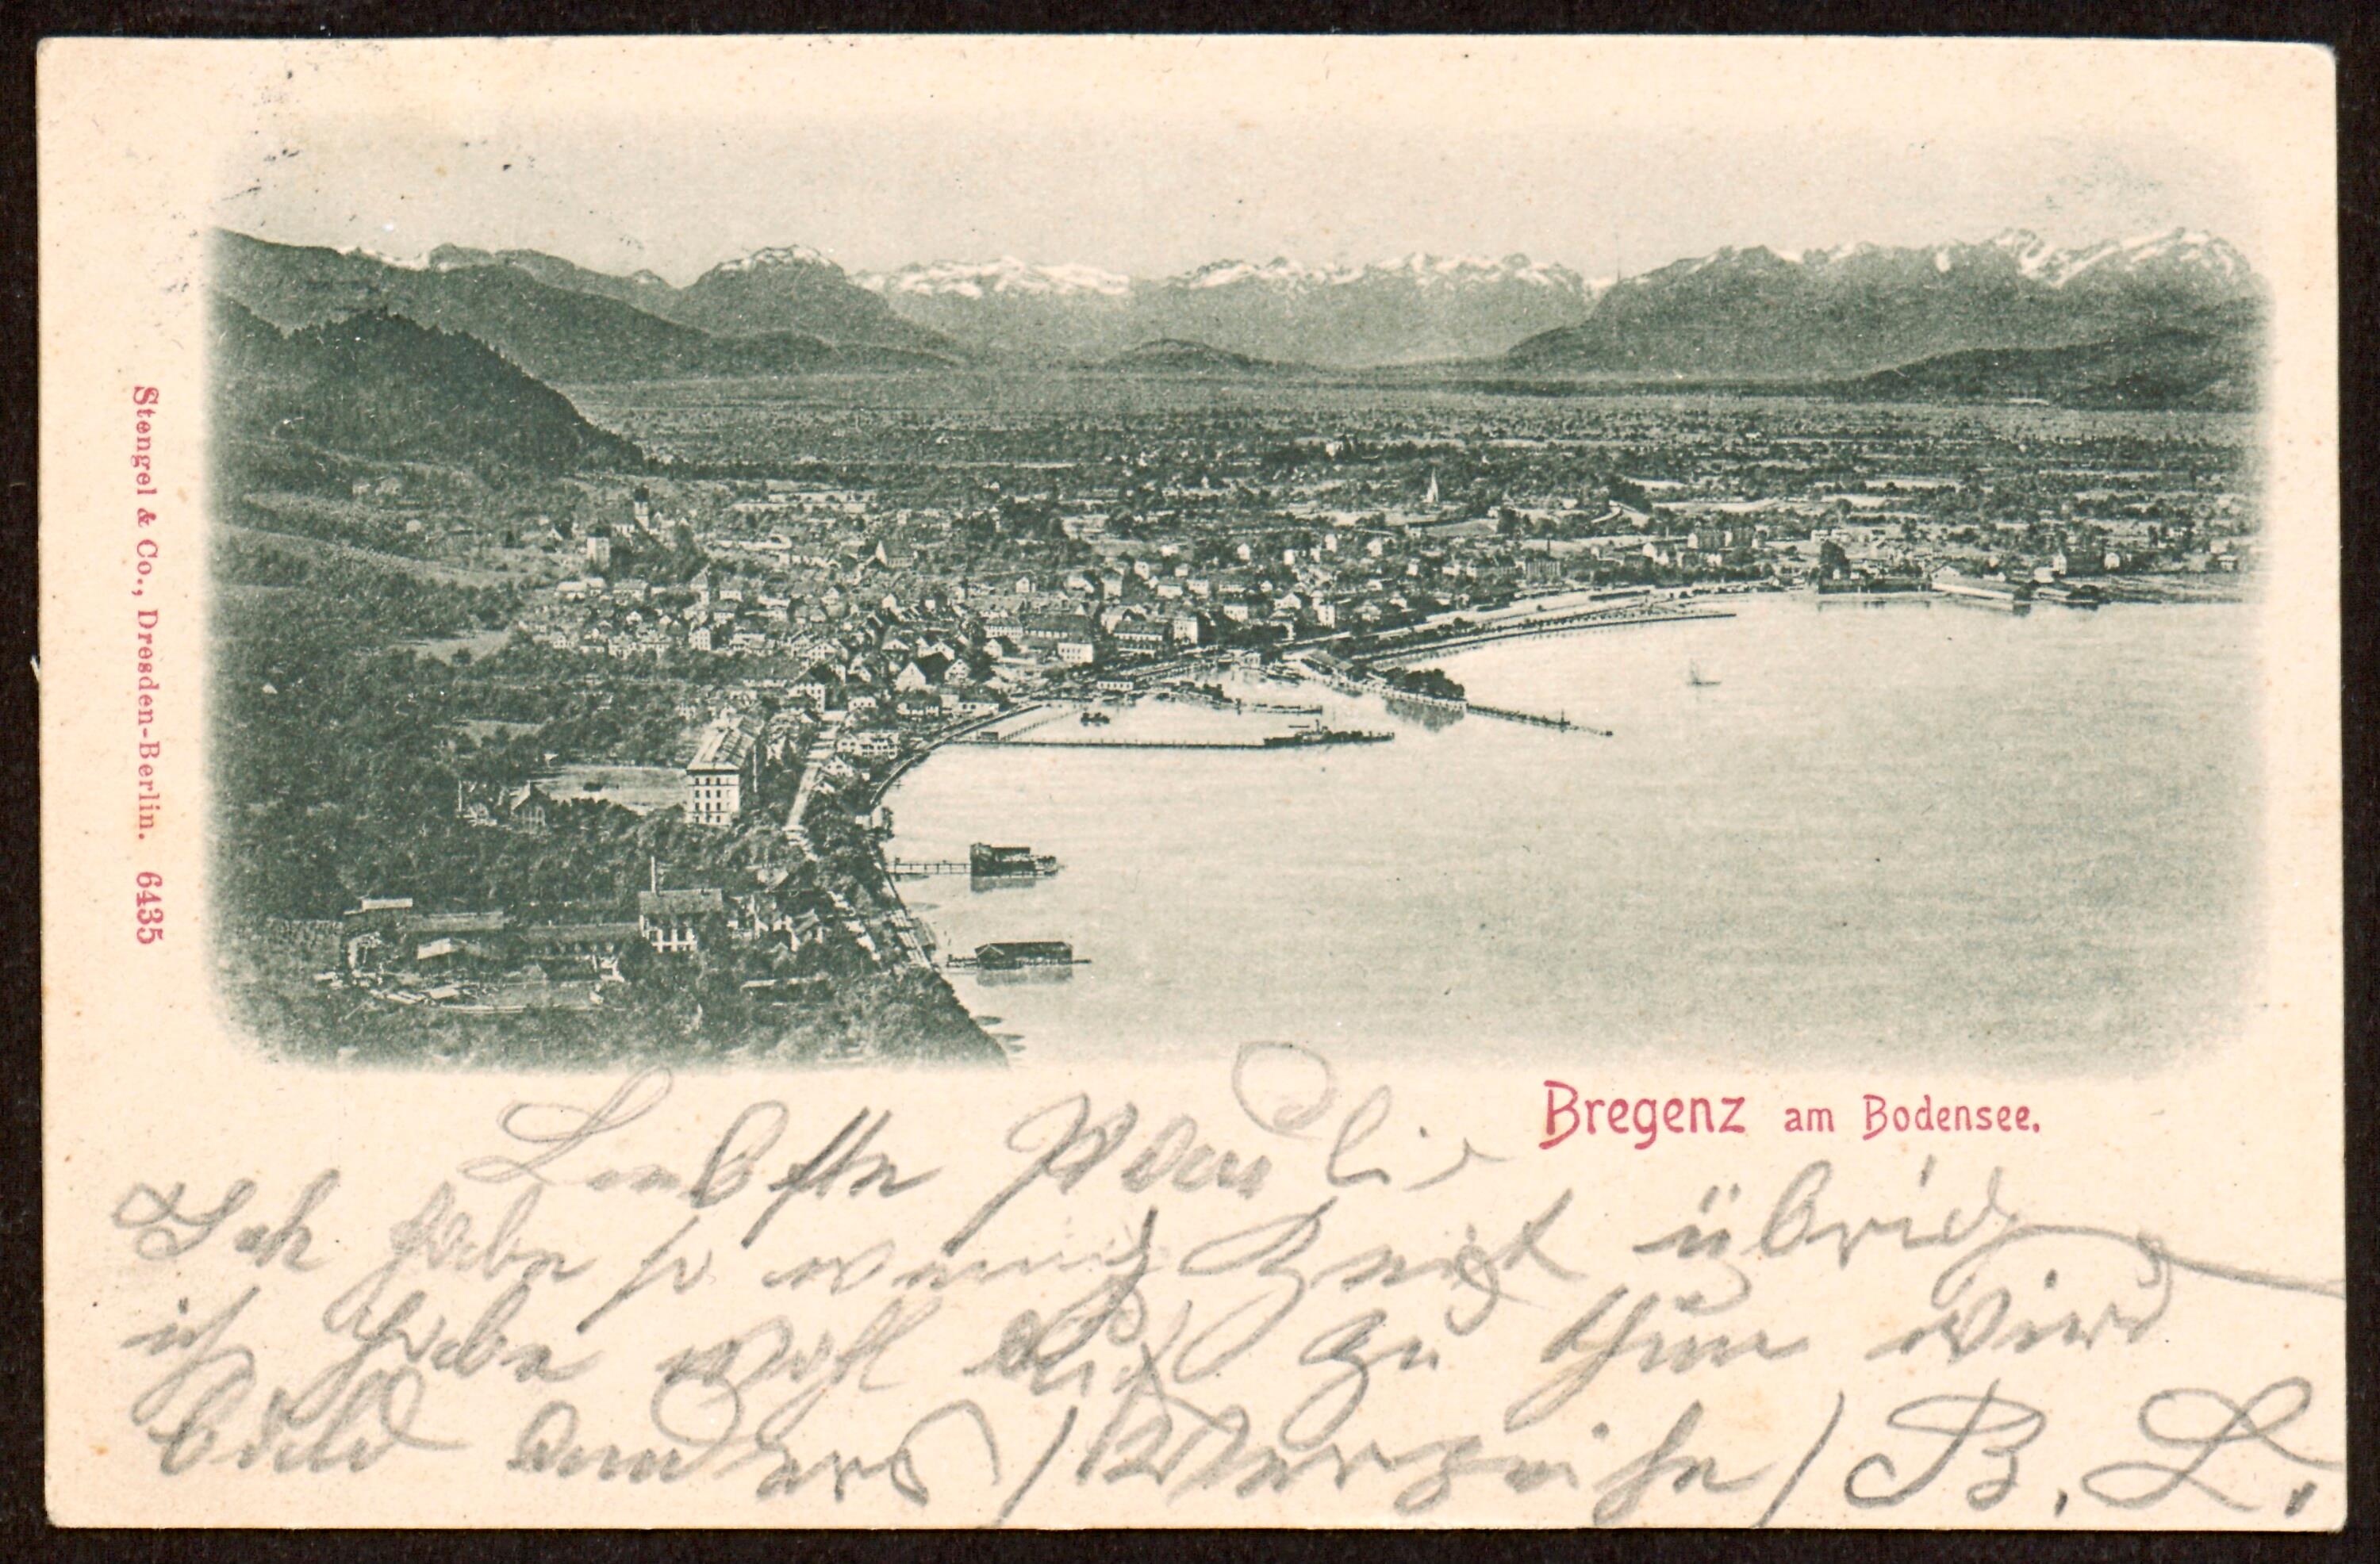 Stengel & Co., Dresden-Berlin. 6435
Bregenz am Bodensee.
Liebste
Ich habe so wenig Zeit übrig
ich habe wohl zu thun wird
bald anders / Verzeihe / B. L.